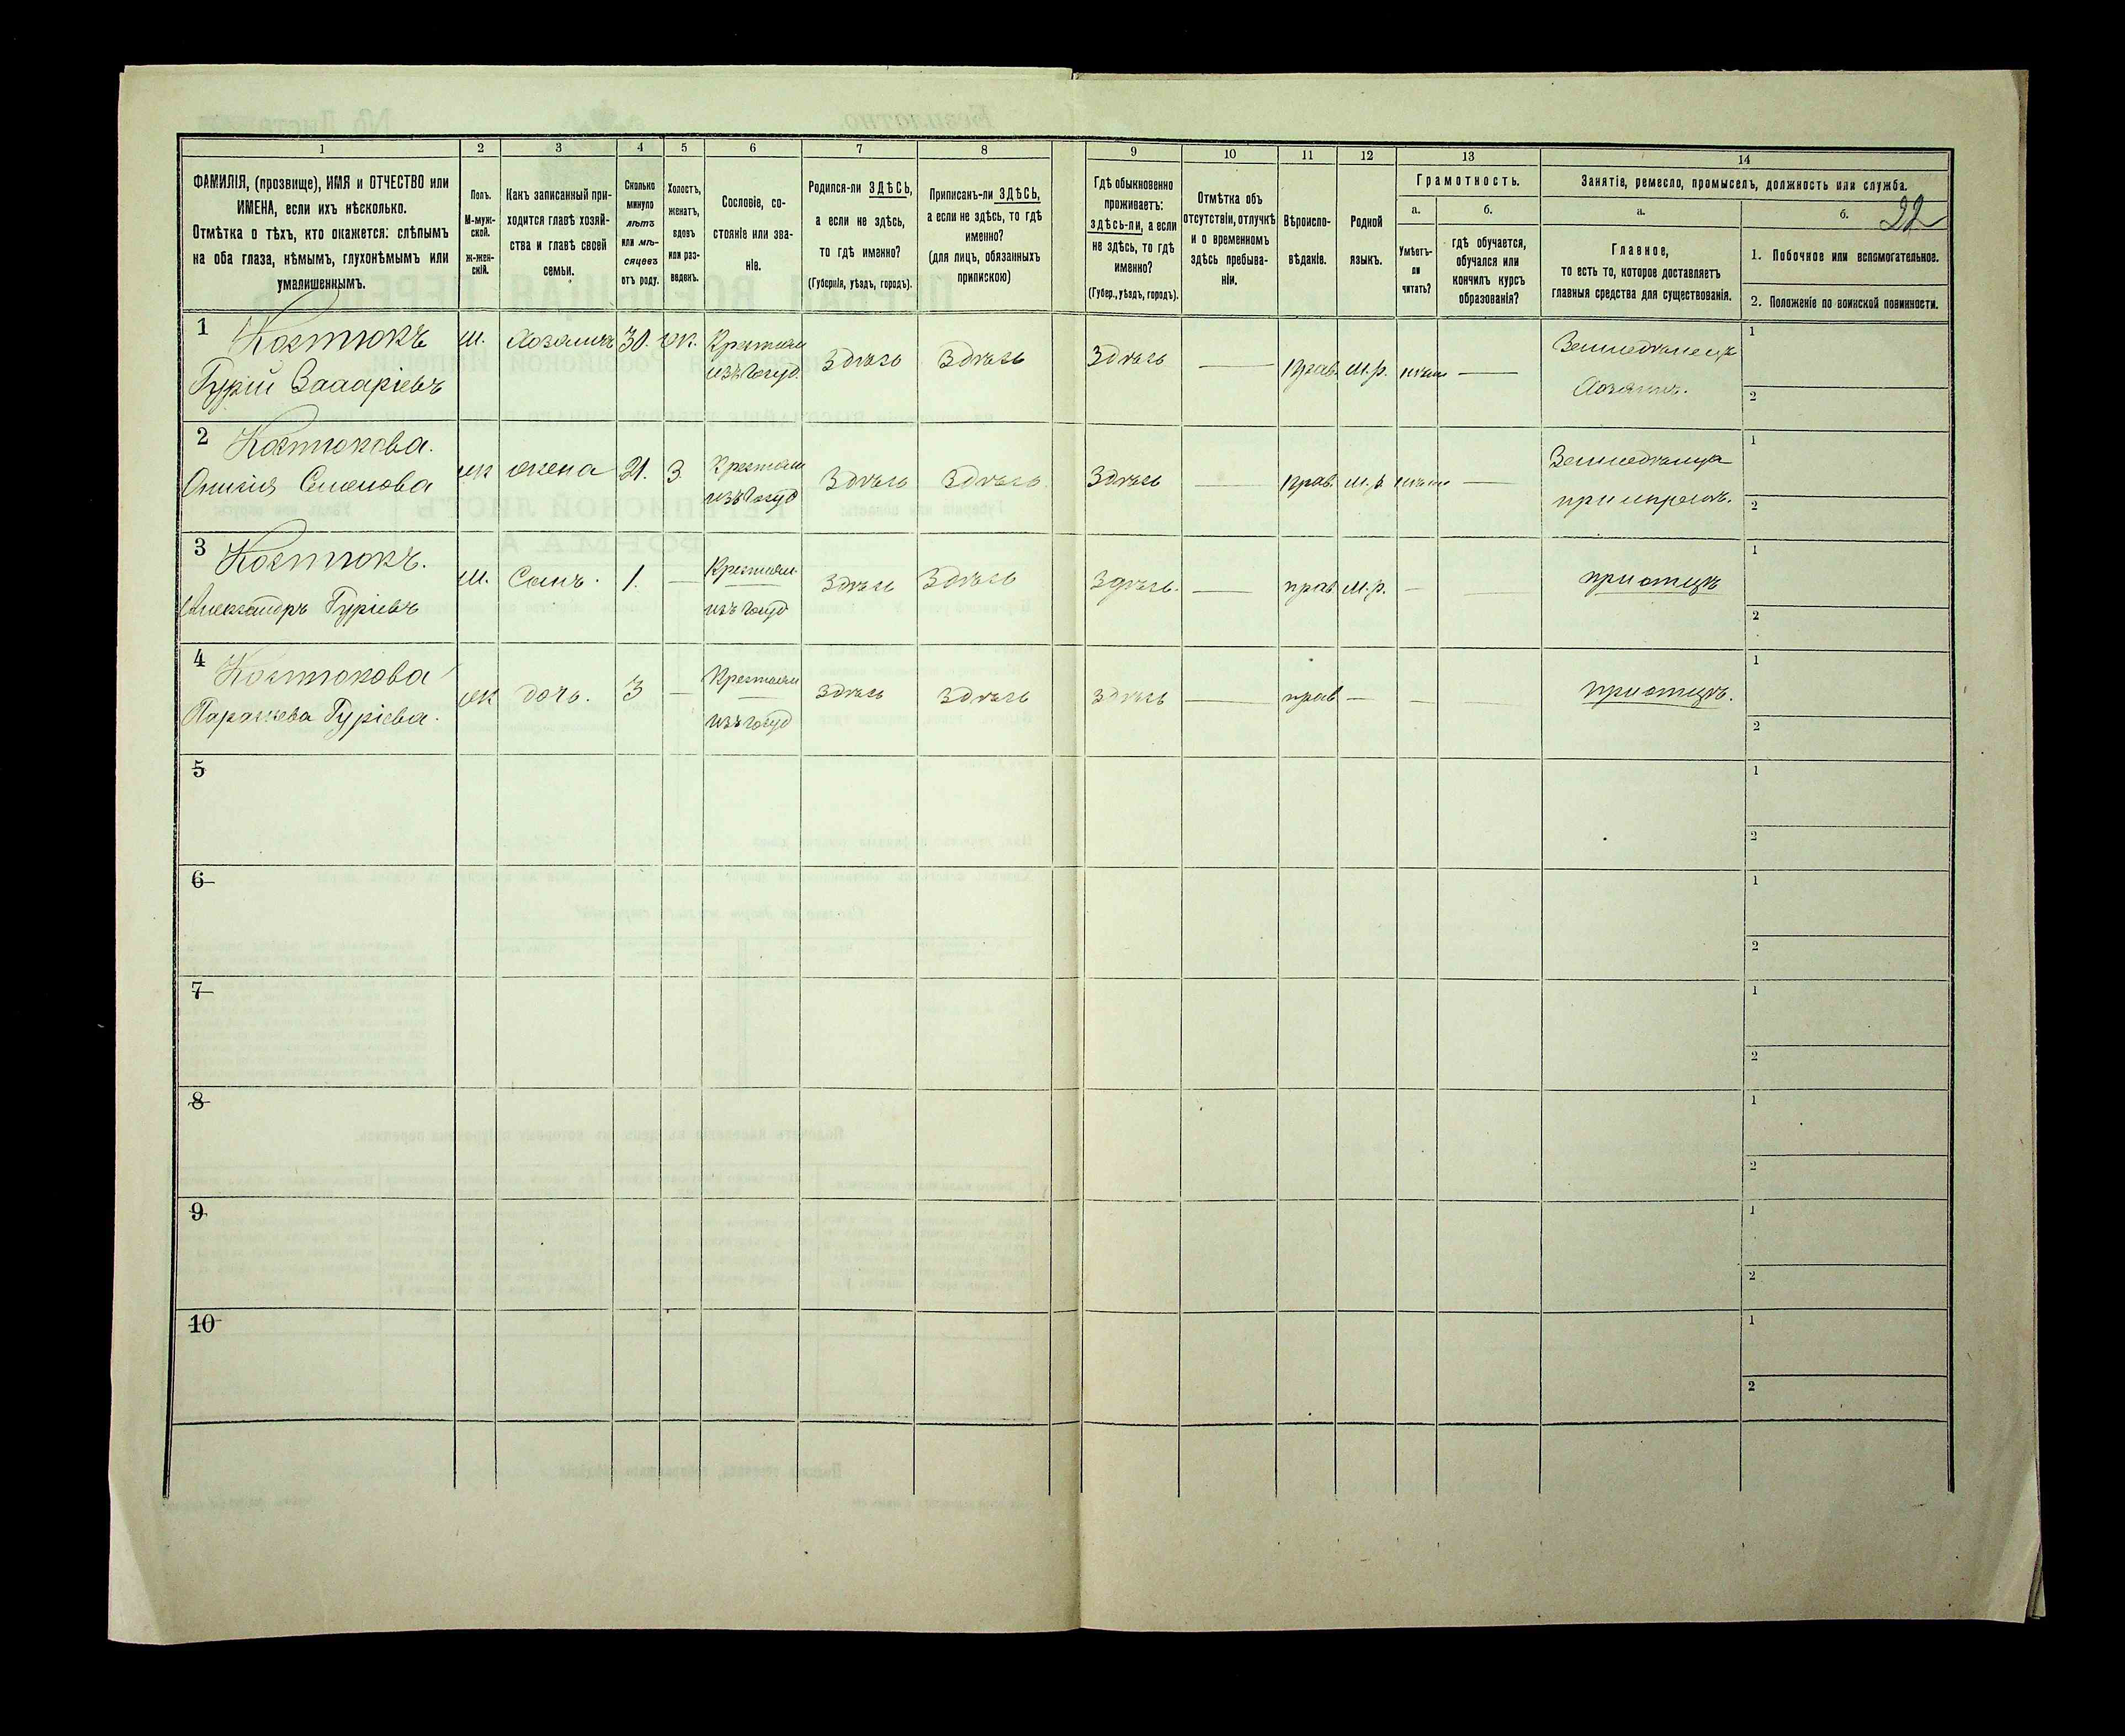 1 2 3 4 5 6 7 8 9 10 11 12 13 14
ФАМИЛІЯ, (прозвище), ИМЯ и ОТЧЕСТВО или
ИМЕНА, если ихъ нѣсколько.
Отмѣтка о тѣхъ, кто окажется: слѣпымъ
на оба глаза, нѣмымъ, глухонѣмымъ или
умалишеннымъ.
Полъ.
М-муж-
ской.
ж-жен-
скій.
Какъ записанный при-
ходится главѣ хозяй-
ства и главѣ своей
семьи.
Сколько
минуло
лѣтъ
или мѣ-
сяцевъ
отъ роду.
Холостъ,
женатъ,
вдовъ
или раз-
веденъ.
Сословіе, со-
стояніе или зва-
ніе.
Родился-ли ЗДѢСЬ,
а если не здѣсь,
то гдѣ именно?
(Губернія, уѣздъ, городъ).
Приписанъ-ли ЗДѢСЬ,
а если не здѣсь, то гдѣ
именно?
(для лицъ, обязанныхъ
припискою)
Гдѣ обыкновенно
проживаетъ:
здѣсь-ли, а если
не здѣсь, то гдѣ
именно?
(Губер., уѣздъ, городъ).
Отмѣтка объ
отсутствіи, отлучкѣ
и о временномъ
здѣсь пребыва-
ніи.
Вѣроиспо-
вѣданіе.
Родной
языкъ.
Грамотность.
а.
Умѣетъ-
ли
читать?
б.
гдѣ обучается,
обучался или
кончилъ курсъ
образованія?
Занятіе, ремесло, промыселъ, должность или служба.
а.
Главное,
то есть то, которое доставляетъ
главныя средства для существованія.
б.
22
1. Побочное или вспомогательное.
2. Положеніе по воинской повинности.
1 Костюкъ
Гурій Захаріевъ
м. Хозяинъ 30. ж. Крестьян
изъ госуд. Здѣсь Здѣсь Здѣсь — прав. м.р. нѣтъ —
Земледѣлецъ
Хозяинъ.
1
2
2 Костюкова.
Семенова
ж жена 21. З. Крестьян
изъ госуд Здѣсь Здѣсь Здѣсь — прав. м.р. нѣтъ —
1
2
3 Костюкъ.
Александръ Гуріевъ
м. Сынъ. 1. — Крестьян.
изъ госуд Здѣсь Здѣсь Здѣсь. — прав м.р. — —
при отцѣ
1
2
4 Костюкова
Параскева Гуріева.
ж дочь. 3 — Крестьян
изъ госуд здѣсь здѣсь здѣсь — прав — — —
при отцѣ.
1
2
5
1
2
6
1
2
7
1
2
8
1
2
9
1
2
10
1
2